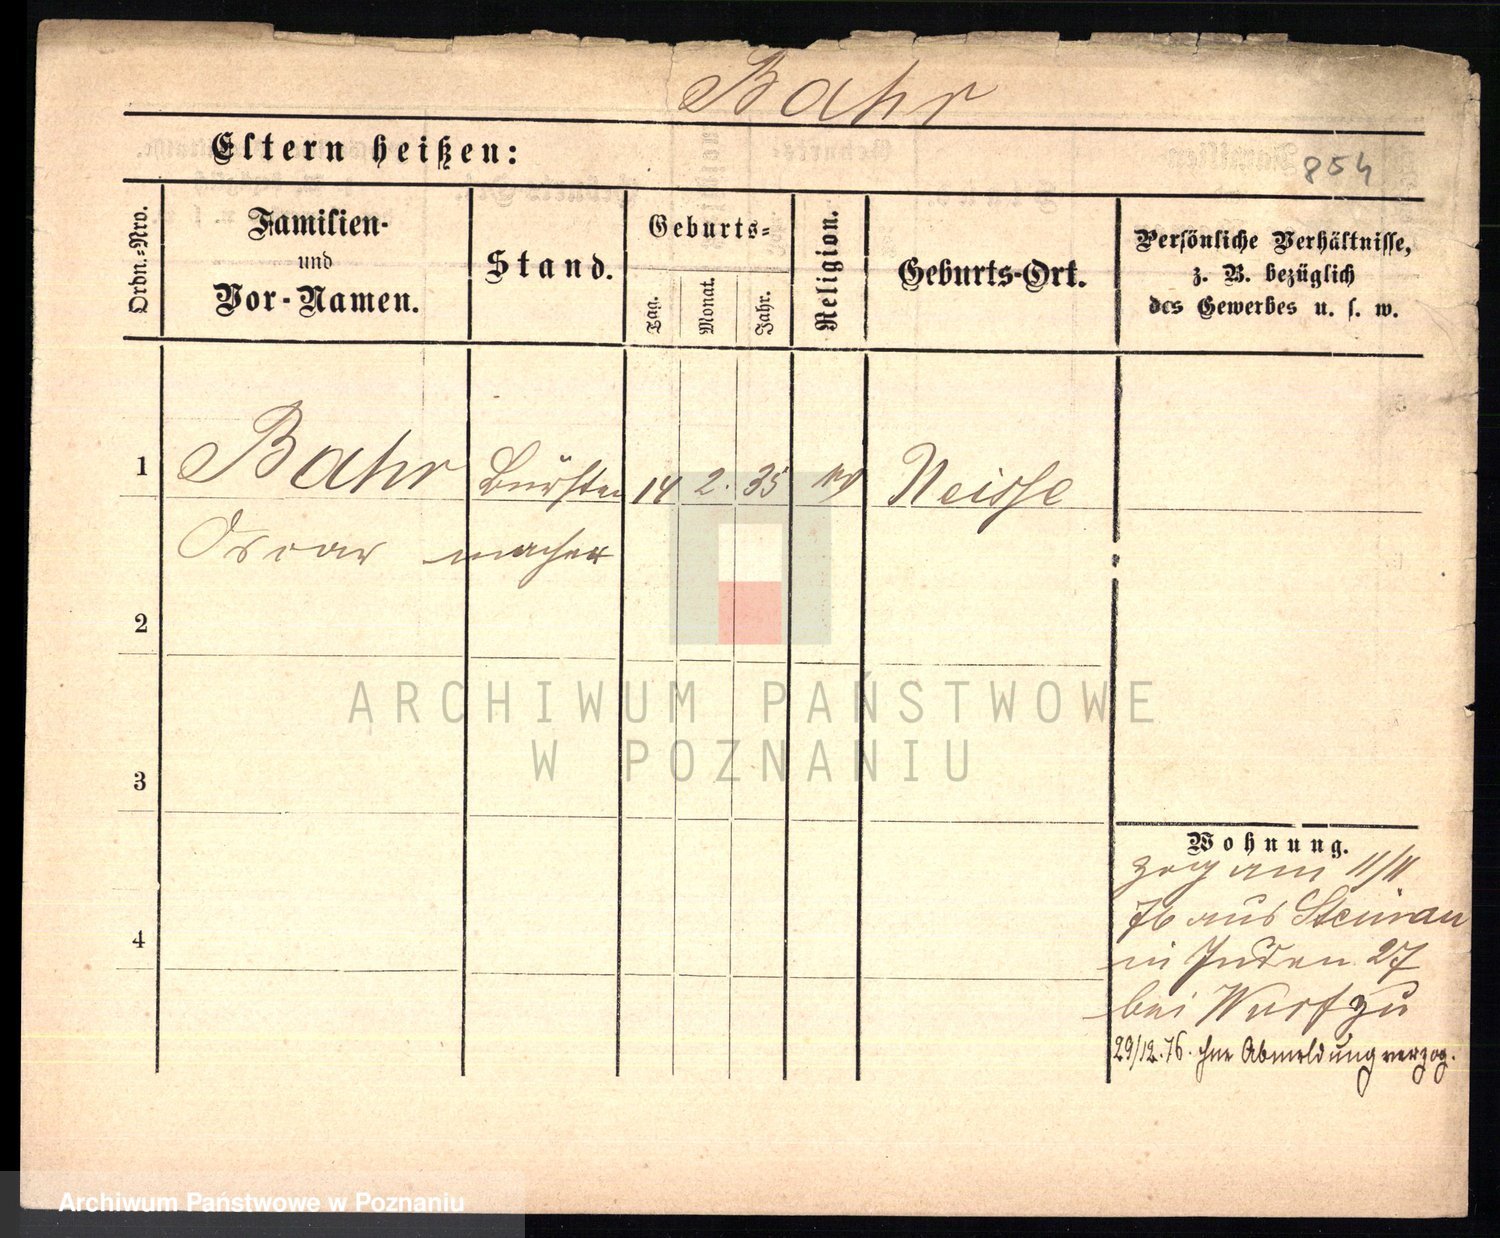 Bahr
Eltern heißen:
854
Ordn.-Nro.
Familien-
und
Vor-Namen.
Stand.
Geburts-
Tag.
Monat.
Jahr.
Religion.
Geburts-Ort.
Persönliche Verhältnisse,
z. B. bezüglich
des Gewerbes u. s. w.
1
Bahr Bürsten 14 2. 35 Neisse
Oscar macher
2
ARCHIWUM PAŃSTWOWE
W POZNANIU
3
Wohnung.
zog am 11/11
76 aus Steinau
4
in Juden 27
bei Wurf zu
29/12.76. ohne Abmeldung verzog.
Archiwum Państwowe w Poznaniu